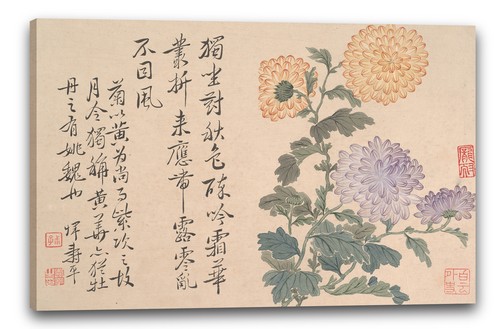 獨坐對秋色酥吟霜華
叢折来應帶露零亂
不因風
菊以黄为尚而紫次之故
月令獨稱黄華心猶牡
丹之有姚魏也
惲壽平